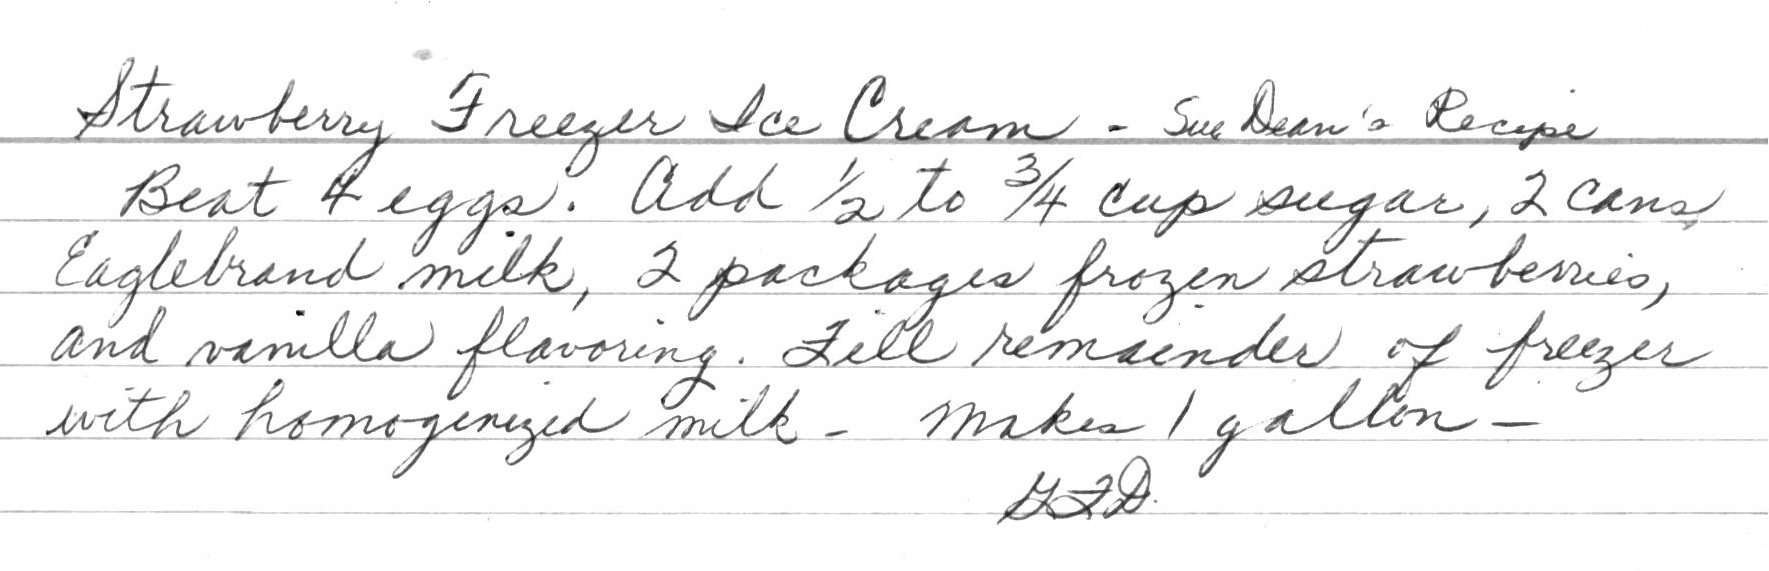 Strawberry Freezer Ice Cream - Sue Dean's Recipe
Beat 4 eggs. Add 1/2 to 3/4 cup sugar, 2 cans
Eaglebrand milk, 2 packages frozen strawberries,
and vanilla flavoring. Fill remainder of freezer
with homogenized milk - Makes 1 gallon -
GFD.